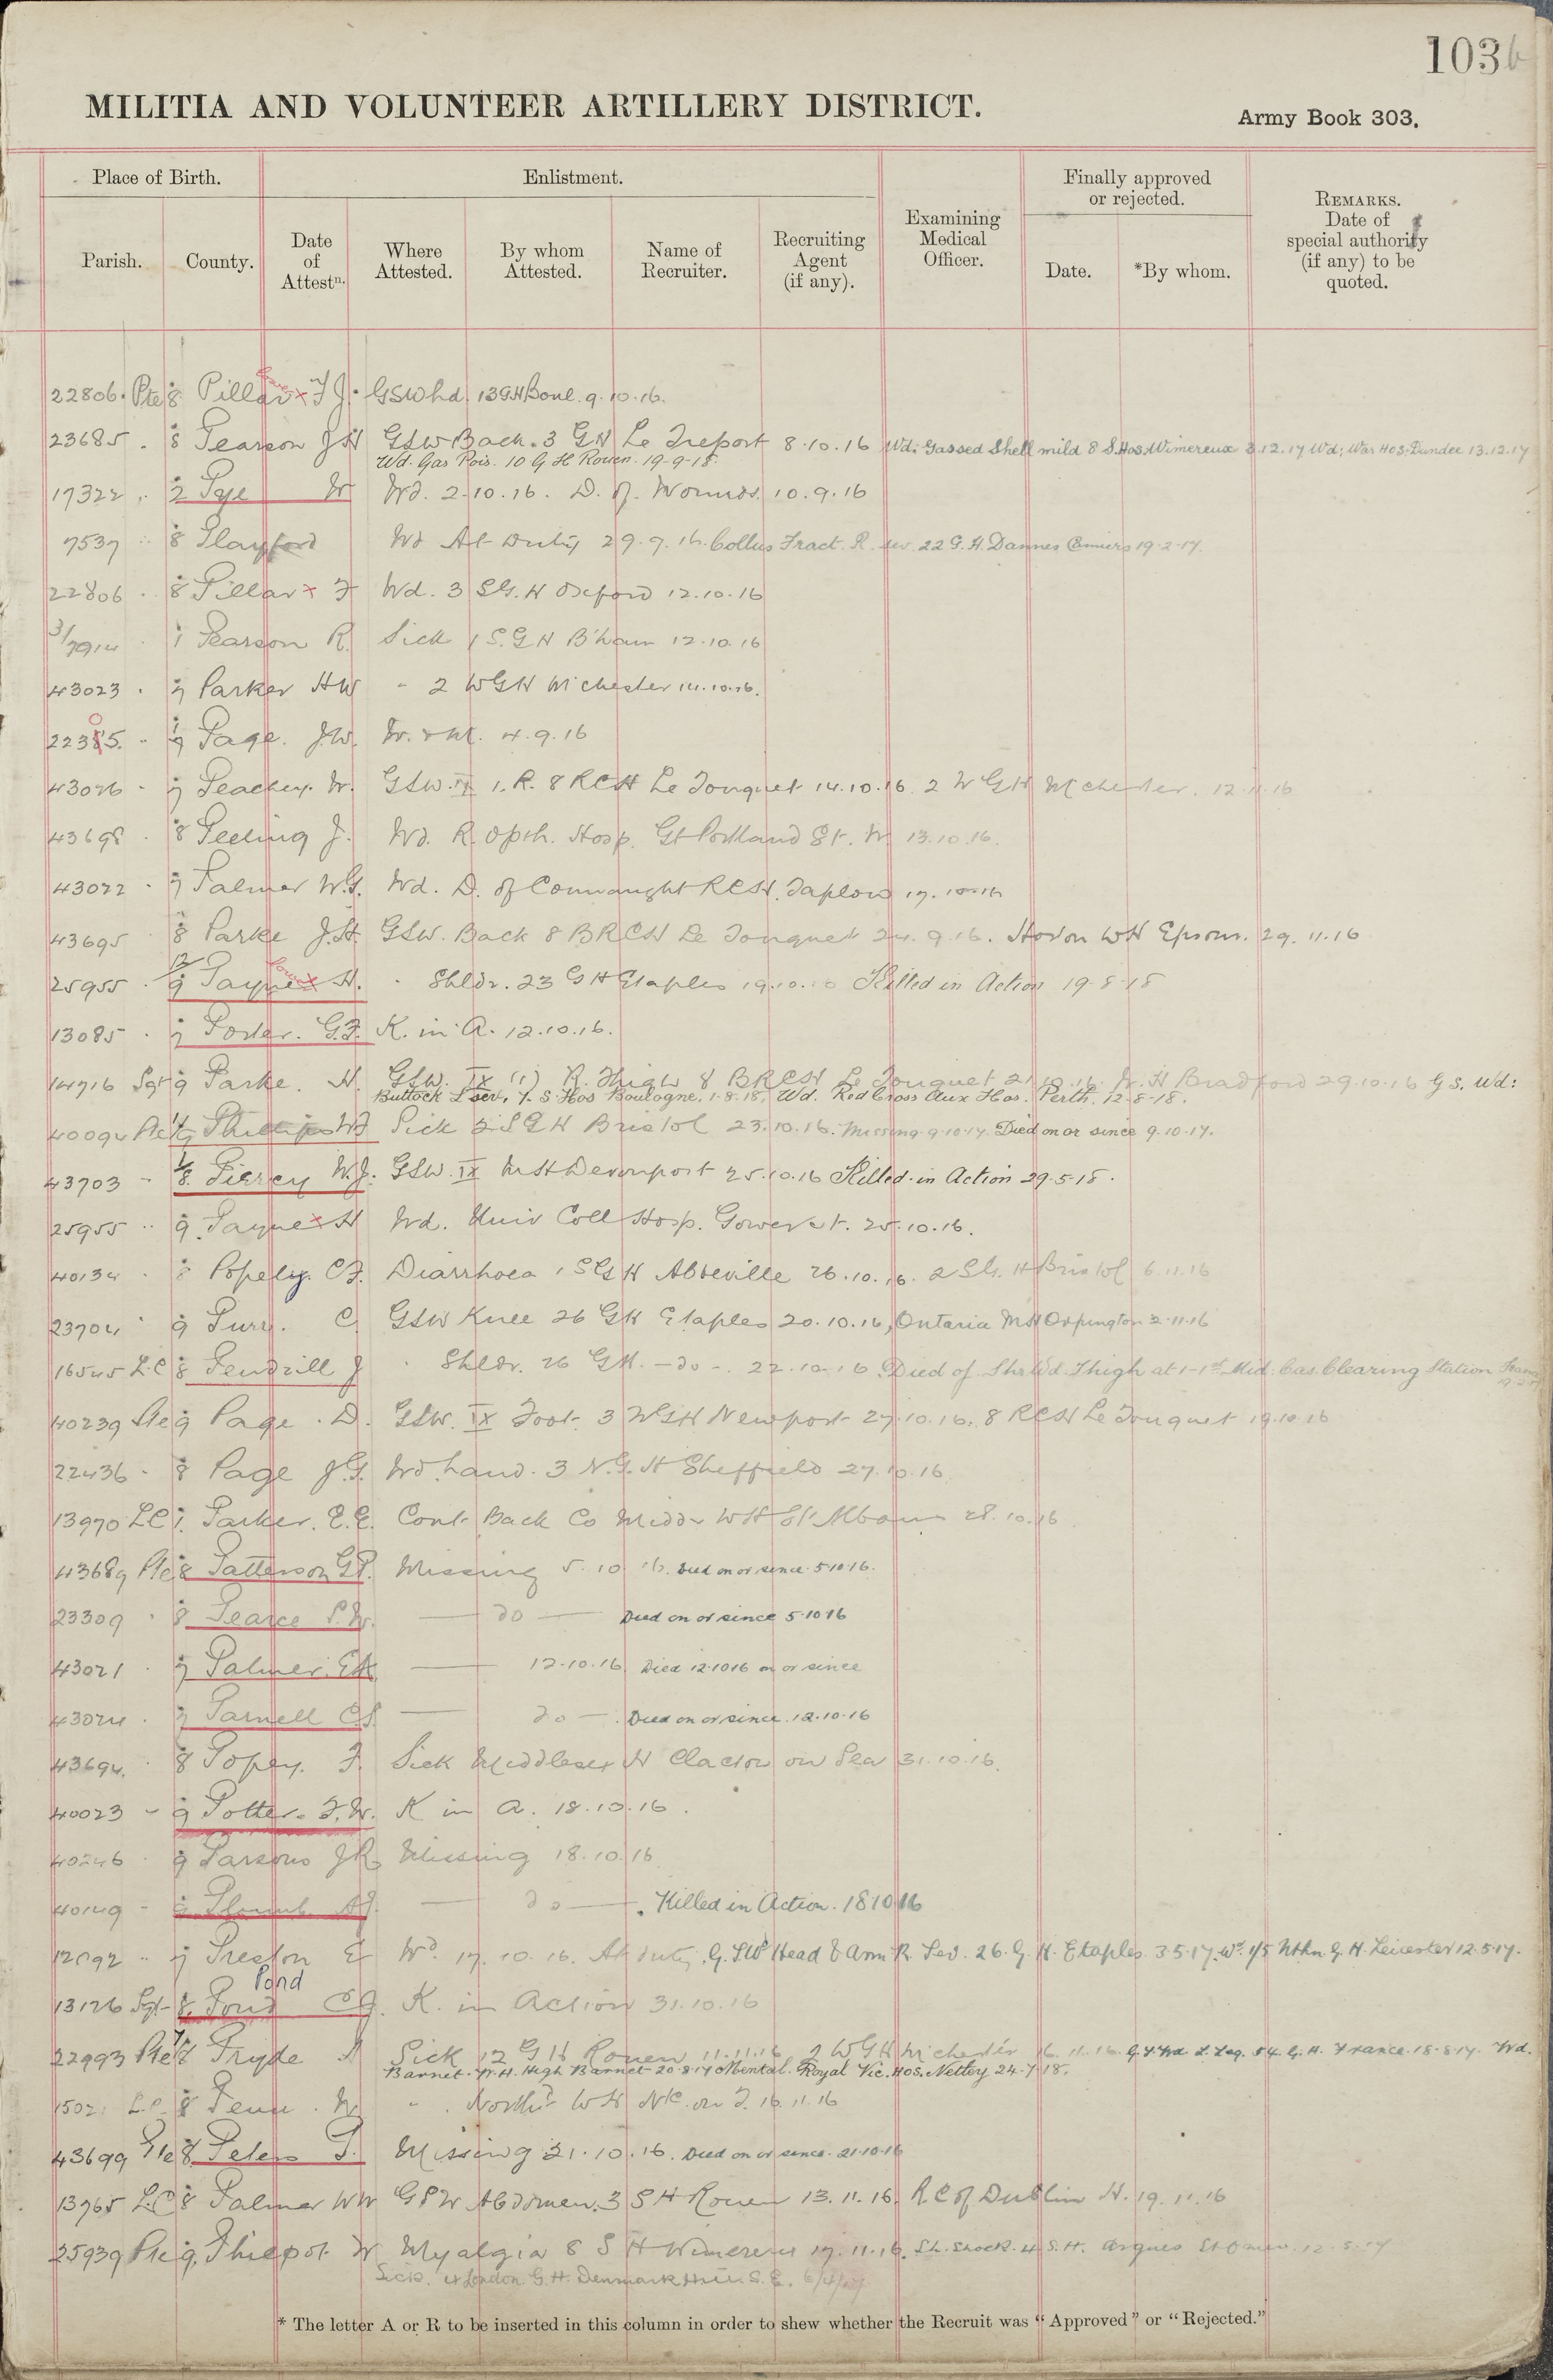 103b
MILITIA AND VOLUNTEER ARTILLERY DISTRICT.
Army Book 303.
Place of Birth. Enlistment. Finally approved or rejected.
Parish. County. Date of Attestn. Where Attested. By whom Attested. Name of Recruiter. Recruiting Agent (if any). Examining Medical Officer. Date. *By whom. REMARKS. Date of special authority (if any) to be quoted.
22806. Pte 8 Pillar x F J. GSW hd 13 GH Boul. 9.10.16.
23685. 8 Pearson J H GSW Back. 3 GH Le Treport 8.10.16 Wd; Gassed Shell mild 8 S.Hos. Wimereux 3.12.17 Wd; War Hos. Dundee 13.12.17
Wd. Gas Pois. 10 G H Rouen. 19-9-18.
17322 .. 2 Pye W Wd. 2.10.16. D. of Wounds. 10.9.16
7537 .. 8 Playford Wd At Duty 29.9.16. Colles Fract. R. 22 G.H. Dannes Camiers 19.2.17.
22806 . 8 Pillar x F Wd. 3 SG.H Oxford 12.10.16
3/7914 . 1 Pearson R. Sick 1 S.G H B'ham 12.10.16
43023 . 7 Parker HW - 2 WGH Wichester 14.10.16.
22385. .. Page. J.W. W. 4.9.16
43026 - 7 Peachey. W. GSW. IX 1. R. 8 RCH Le Touquet 14.10.16. 2 W GH Wchester. 12.11.16
43698 . 8 Peeling J. Wd. R. Opth. Hosp. Gt Portland St. W 13.10.16.
43022 . 7 Palmer W.G. Wd. D. of Connaught RCH. Taplow 17.10.16
43695 8 Parke J.H. GSW. Back 8 BRCH Le Touquet 24.9.16. Horton WH Epsom. 29.11.16
12
25955 . 9 Payne x H. . Shldr. 23 GH Etaples 19.10.16 Killed in Action 19-8-18
13085 . 7 Porter. G.F. K. in A. 12.10.16.
14716 Sgt 9 Parke. H. GSW. IX (1) R. Thigh 8 BRCH Le Touquet 21.10.16. W. H Bradford 29.10.16 G S. Wd:
Buttock L Sev. 7. S. Hos Boulogne. 1.8.18. Wd. Red Cross Aux Hos. Perth. 12-8-18.
40094 Pte Phillips WJ Sick 2 SGH Bristol 23.10.16. Missing 9.10.17. Died on or since 9.10.17.
43703 - 1/8 Piercy W.J. GSW. IX M.H Devonport 25.10.16 Killed in Action 29.5.18.
25955 .. 9 Payne x H Wd. Univ Coll Hosp. Gower st. 25.10.16.
40134 . 8 Popely. C.F. Diarrhoea 1 SGH Abbeville 26.10.16. 2 SG. H Bristol 6.11.16
23704 . 9 Purr. C. GSW Knee 26 GH Etaples 20.10.16, Ontario MH Orpington 2.11.16
16545 L.C 8 Pendrill J . Shldr. 26 GH. -do-. 22.10.16 Died of Shrl Wd. Thigh at 1-1st Mid. Cas. Clearing Station France
40239 Pte 9 Page. D. GSW. IX Foot. 3 WGH Newport 27.10.16. 8 RCH Le Touquet 19.10.16
22436 . 8 Page J.G. Wd hand. 3 N.G.H Sheffield 27.10.16.
13970 LC 7. Parker. E.E. Cont Back Co Middx WH St Albans 28.10.16
43689 Pte 8 Patterson G.P. Missing 5.10.16. Died on or since 5.10.16.
23309 . 8 Pearce P.W. — do — Died on or since 5.10.16
43021 . 7 Palmer. EA — 12.10.16 Died 12.10.16 on or since
43024 . 7 Parnell C.S. — do —. Died on or since. 12.10.16
43694. . 8 Popey. F. Sick Middlesex H Clacton on Sea 31.10.16.
40023 - 9 Potter. F.W. K in A. 18.10.16.
40246 . 9 Parsons J R. Missing 18.10.16
40149 - 9 Plumb A.J. — do —. Killed in Action. 18.10.16
12092 .. 7 Preston E Wd. 17.10.16. At duty. G.S.Wd Head & Arm R. Sev. 26.G.H. Etaples 3.5.17. Wd. 1/5 Nthn. G.H. Leicester 12.5.17.
Pond
13126 Sgt - 8. Pond C.G. K. in Action 31.10.16
22993 Pte 7/8 Pryde A Sick 12 GH Rouen 11.11.16 2 WGH Wichester 16.11.16. G.S. Wd L. Leg. 54. G.H. France. 18.8.17. Wd.
Barnet. W.H. High Barnet 20.8.17 Mental. Royal Vic. Hos. Netley 24.7.18.
1502. L.C. 8 Penn. W - . North'd WH N/C on T. 16.11.16
43699 Pte 8 Peters P. Missing 21.10.16. Died on or since. 21.10.16
13765 L.C 8 Palmer WW GSW Abdomen. 3 S H Rouen 13.11.16. R.C of Dublin H. 19.11.16
25939 Pte 9. Philpot. W Myalgia 8 S H Wimereux 17.11.16. Sh. Shock. 4 S.H. Arques St Omer. 12.5.17
Sick. 4 London. G.H. Denmark Hill. S.E.
* The letter A or R to be inserted in this column in order to shew whether the Recruit was "Approved" or "Rejected."